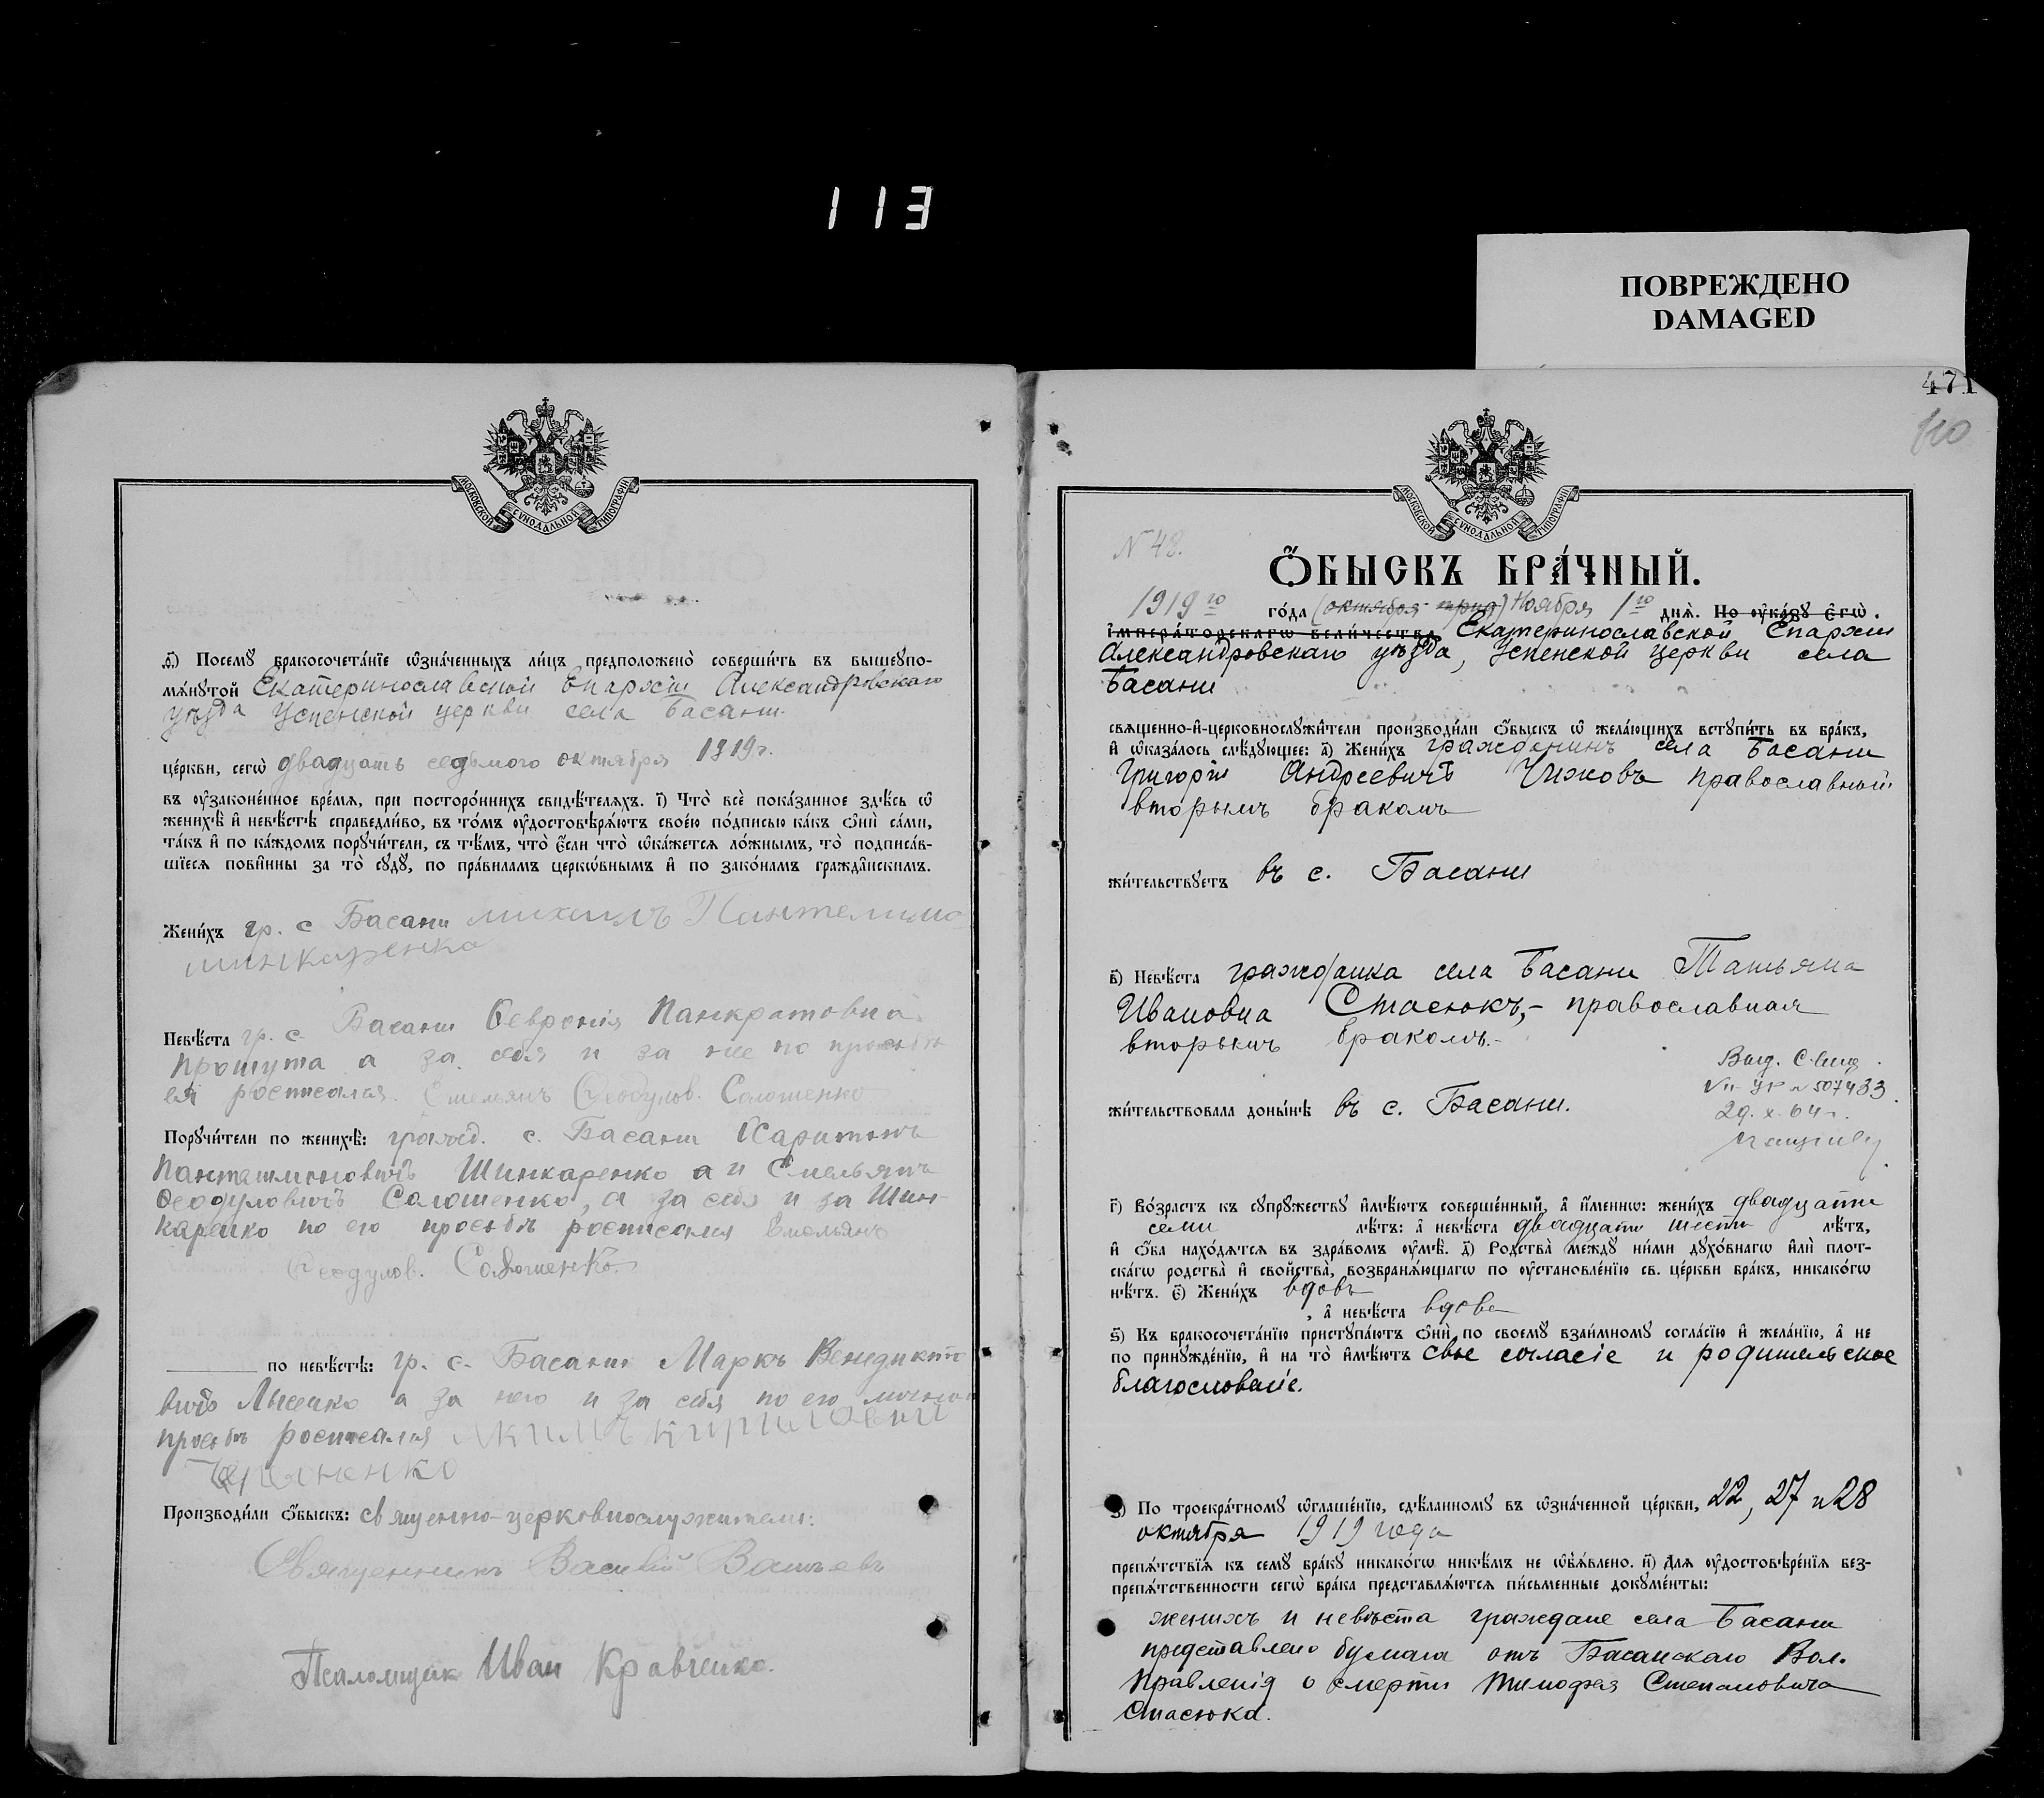 113
ПОВРЕЖДЕНО
DAMAGED
МОСКОВСКОЙ СѴНОДАЛЬНОЙ ТИПОГРАФІИ
ѳ҃) Посемꙋ бракосочета́нїе ѡ҆зна́ченныхъ ли́цъ предположено̀ соверши́ть въ вышеупо-
мѧ́нꙋтой Екатеринославской Епархіи Александровскаго
уѣзда Успенской церкви села Басани.
це́ркви, сегѡ̀ двадцать седьмого октября 1919 г.
въ ᲂу҆зако́ненное вре́мѧ, при посторо́ннихъ свидѣ́телѧхъ. і҃) Что̀ всѐ пока́занное здѣ́сь ѡ҆
женихѣ̀ и҆ невѣ́стѣ справедли́во, въ то́мъ ᲂу҆достовѣрѧ́ютъ свое́ю по́дписью ка́къ ѻ҆нѝ са́ми,
та́къ и҆ по ка́ждомъ порꙋчи́тели, съ тѣ́мъ, что̀ є҆́сли что̀ ѡ҆ка́жетсѧ ло́жнымъ, то̀ подписа́в-
шїесѧ пови́нны за то̀ сꙋдꙋ̀, по пра́виламъ церкѡ́внымъ и҆ по зако́намъ гражда́нскимъ.
Жени́хъ гр. с Басани михаилъ Пантелимо
шинкаренко
Невѣ́ста гр. с. Басани Ѳевронія Панкратовна
Прошута а за себя и за нее по просьбѣ
ея росписался. Емельянъ Ѳеодулов. Солошенко
Порꙋчи́тели по женихѣ̀: гражд. с. Басани Харитонъ
Пантелимоновичъ Шинкаренко а и Емельянъ
Ѳеодуловичъ Солошенко, а за себя и за Шин-
каренко по его просьбѣ росписался Емельянъ
Ѳеодулов. Солошенко
по невѣ́стѣ: гр. с. Басани Маркъ Венедикто
вичъ Лысенко а за него и за себя по его личной
просьбѣ росписался Акимъ Кириловичъ
Производи́ли ѻ҆́быскъ: священно-церковнослужители:
Священникъ Василій
Псаломщик Иван Кравченко.
471
110
МОСКОВСКОЙ СѴНОДАЛЬНОЙ ТИПОГРАФІИ
N 48.
Ѻ҆́БЫСКЪ БРА́ЧНЫЙ.
1919го го́да (октября) Ноября 1го днѧ̀. По ᲂу҆ка́зꙋ є҆гѡ̀
і҆мпера́торскагѡ вели́чества, Екатеринославской Епархіи
Александровскаго уѣзда, Успенской церкви села
Басани
свѧще́нно-и҆-церковнослꙋжи́тели производи́ли ѻ҆́быскъ ѡ҆ жела́ющихъ встꙋпи́ть въ бра́къ,
и҆ ѡ҆каза́лось слѣ́дꙋющее: а҃) Жени́хъ гражданинъ села Басани
Григорій Андреевичъ Чижовъ православный
вторымъ бракомъ
жи́тельствꙋетъ въ с. Басани
в҃) Невѣ́ста гражданка села Басани Татьяна
Ивановна Стасюкъ,- православная
вторымъ бракомъ.-
Выд. Свид
VII-УР N 507433
29. X. 64 г.
жи́тельствовала доны́нѣ въ с. Басани.
г҃) Во́зрастъ къ сꙋпрꙋ́жествꙋ и҆мѣ́ютъ соверше́нный, а҆ и҆́меннѡ: жени́хъ двадцати
семи лѣ́тъ: а҆ невѣ́ста двадцати шести лѣ́тъ,
и҆ ѻ҆́ба нахо́дѧтсѧ въ здра́вомъ ᲂу҆мѣ̀. д҃) Родства̀ междꙋ̀ ни́ми дꙋхо́внагѡ и҆лѝ плот-
ска́гѡ родства̀ и҆ свойства̀, возбранѧ́ющагѡ по ᲂу҆становле́нїю св. це́ркви бра́къ, никако́гѡ
нѣ́тъ. є҃) Жени́хъ вдовъ
, а҆ невѣ́ста вдова
ѕ҃) Къ бракосочета́нїю пристꙋпа́ютъ ѻ҆нѝ по своемꙋ̀ взаи́мномꙋ согла́сїю и҆ жела́нїю, а҆ не
по принꙋжде́нїю, и҆ на то̀ и҆мѣ́ютъ свое согласіе и родительское
благословеніе.
з҃) По троекра́тномꙋ ѡ҆глаше́нїю, сдѣ́ланномꙋ въ ѡ҆зна́ченной це́ркви, 22, 27 и 28
октября 1919 года
препѧ́тствїѧ къ семꙋ̀ бра́кꙋ никако́гѡ никѣ́мъ не ѡ҆б̾ѧ́влено. и҃) Длѧ ᲂу҆достовѣре́нїѧ без-
препѧ́тственности сегѡ̀ бра́ка представлѧ́ютсѧ пи́сьменные докꙋме́нты:
женихъ и невѣста граждане села Басани
представлено бумага отъ Басанскаго Вол.
Правленія о смерти Тимофея Степановича
Стасюка.